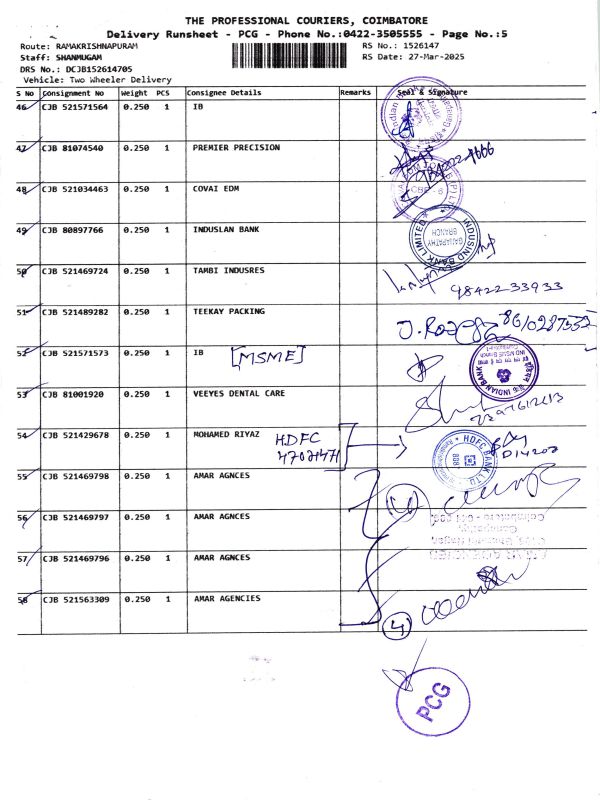 THE PROFESSIONAL COURIERS, COIMBATORE
Delivery Runsheet - PCG - Phone No.:0422-3505555 - Page No.:5
Route: RAMAKRISHNAPURAM RS No.: 1526147
Staff: SHANMUGAM RS Date: 27-Mar-2025
DRS No.: DCJB152614705
Vehicle: Two Wheeler Delivery
S No Consignment No Weight PCS Consignee Details Remarks Seal & Signature
46 CJB 521571564 0.250 1 IB
47 CJB 81074540 0.250 1 PREMIER PRECISION
48 CJB 521034463 0.250 1 COVAI EDM
CBE - 6
49 CJB 80897766 0.250 1 INDUSLAN BANK
INDUSIND BANK LIMITED
GANAPATHY
BRANCH
50 CJB 521469724 0.250 1 TAMBI INDUSRES
98422 33933
51 CJB 521489282 0.250 1 TEEKAY PACKING
52 CJB 521571573 0.250 1 IB [MSME]
INDIAN BANK
IND MSME Branch
53 CJB 81001920 0.250 1 VEEYES DENTAL CARE
54 CJB 521429678 0.250 1 MOHAMED RIYAZ HDFC
HDFC BANK LTD
55 CJB 521469798 0.250 1 AMAR AGNCES
56 CJB 521469797 0.250 1 AMAR AGNCES
57 CJB 521469796 0.250 1 AMAR AGNCES
58 CJB 521563309 0.250 1 AMAR AGENCIES
4
PCG